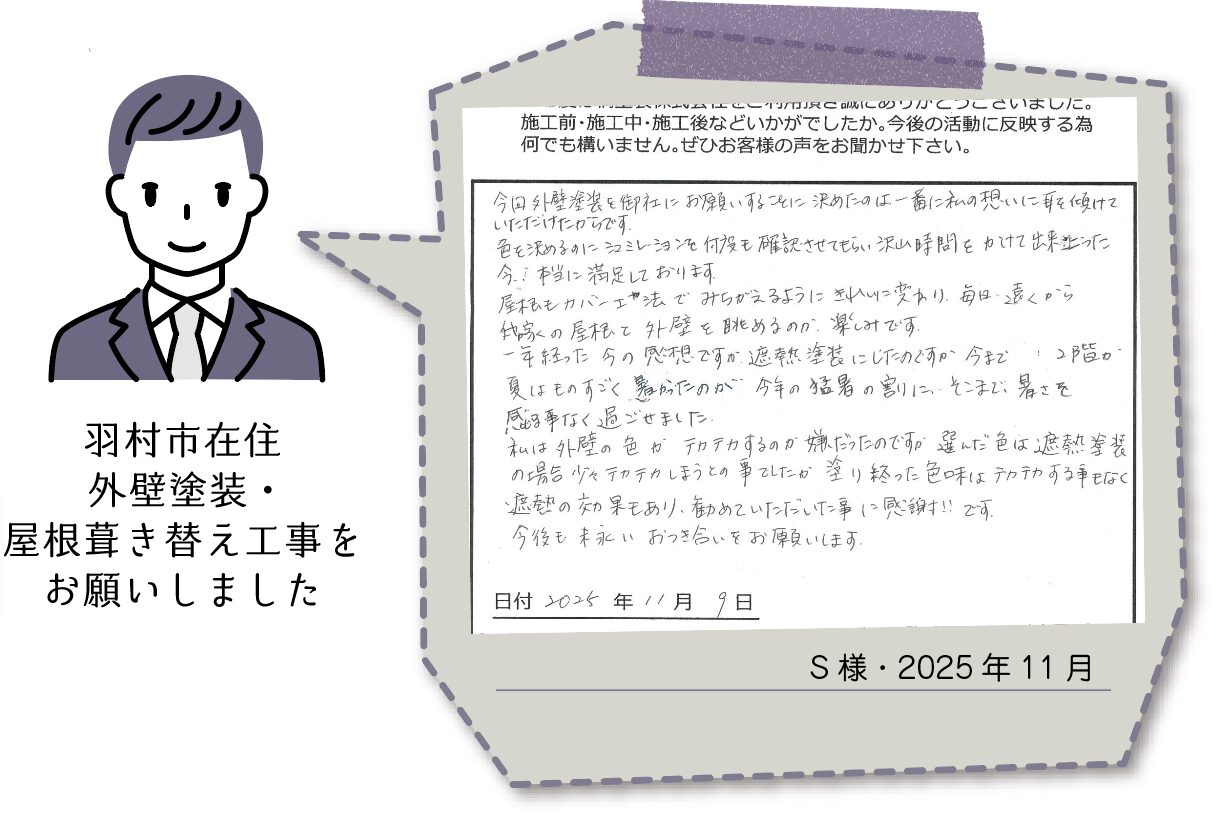 羽村市在住
外壁塗装・
屋根葺き替え工事を
お願いしました
株式会社をご利用頂き誠にありがとうございました。
施工前・施工中・施工後などいかがでしたか。今後の活動に反映する為
何でも構いません。ぜひお客様の声をお聞かせ下さい。
今回外壁塗装を御社にお願いすることに決めたのは一番に私の想いに耳を傾けて
いただけたからです。
色を決めるのにシュミレーションを何役も確認させてもらい沢山時間をかけて出来上った
今、本当に満足しております。
屋根もカバー工法でみちがえるようにきれいに変わり、毎日、遠くから
我家の屋根と外壁を眺めるのが、楽しみです。
一年経った今の感想ですが遮熱塗装にしたのですが今まで 2階が
夏はものすごく暑かったのが 今年の猛暑の割に、そこまで暑さを
感る事なく過ごせました。
私は外壁の色がテカテカするのが嫌だったのですが選んだ色は遮熱塗装
の場合少々テカテカしまうとの事でしたが塗り終った色味はテカテカする事もなく
遮熱の効果もあり、勧めていただいた事に感謝!!です。
今後も末永いおつき合いをお願いします。
日付 2025 年 11 月 9 日
S様・2025年11月